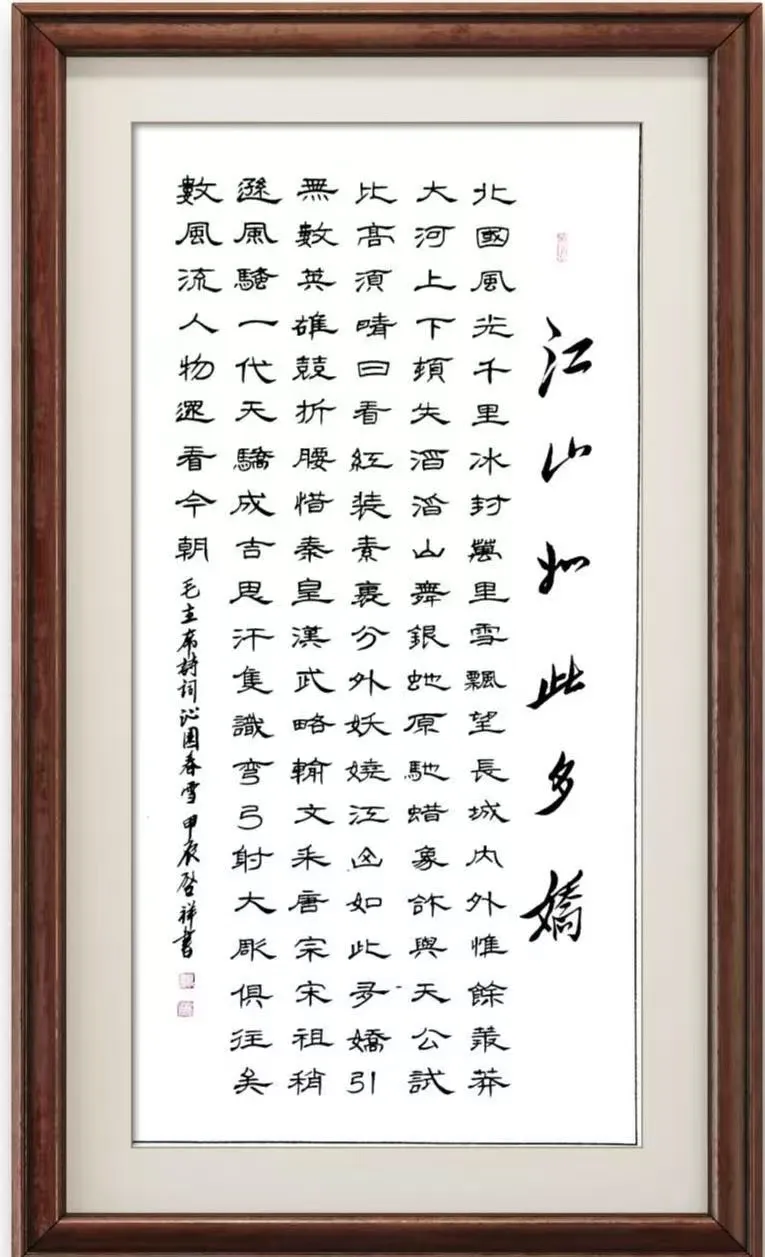 江山如此多嬌
北國風光千里冰封萬里雪飄望長城内外惟餘叢莽
大河上下頓失滔滔山舞銀虵原馳蜡象欲與天公試
比髙須晴日看紅装素裹分外妖嬈江山如此多嬌引
無數英雄競折腰惜秦皇漢武略輸文采唐宗宋祖稍
遜風騷一代天驕成吉思汗隻識彎弓射大彫俱往矣
數風流人物還看今朝 毛主席詩詞沁園春雪甲辰啓祥書